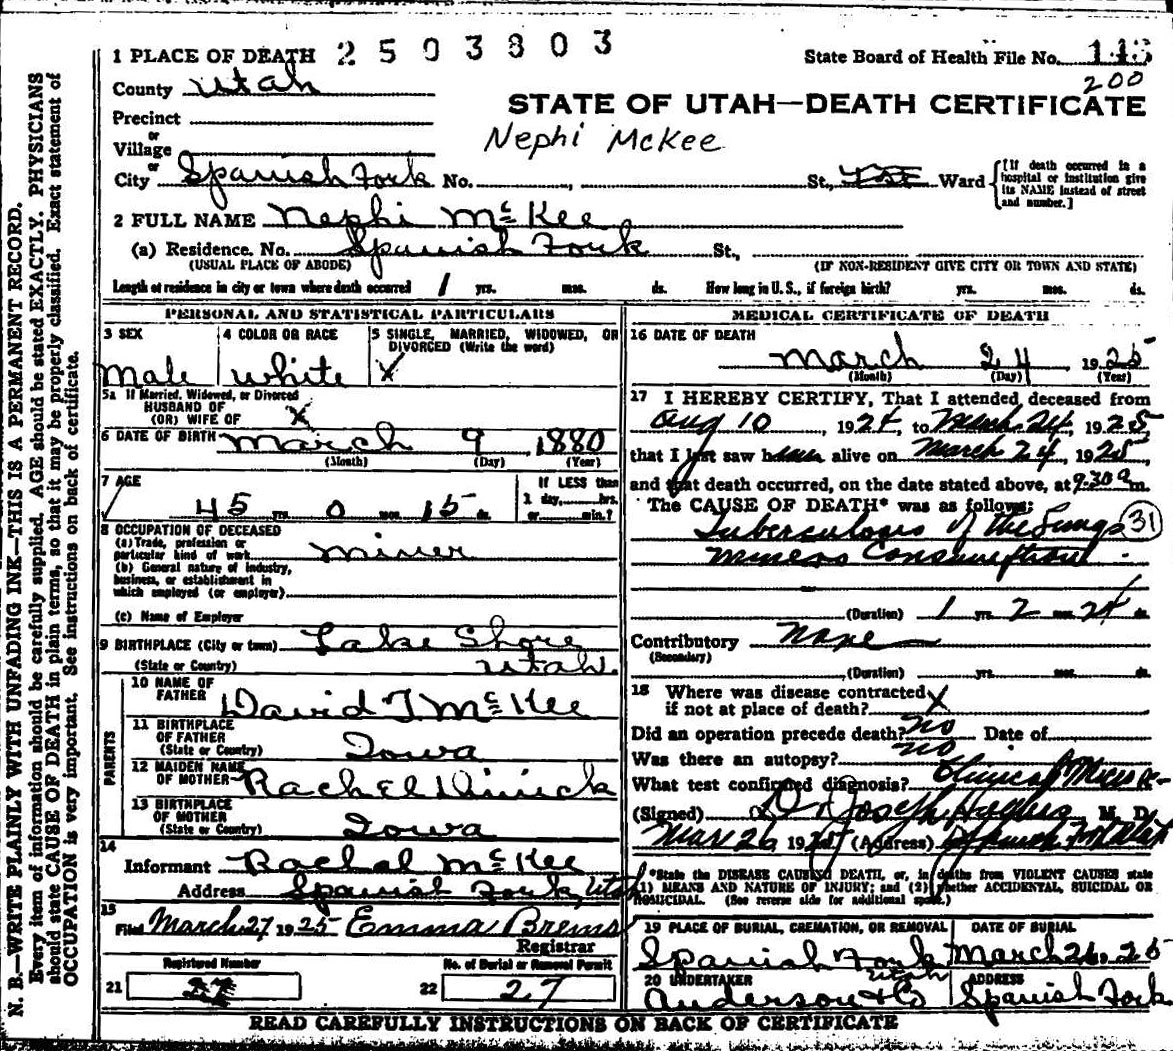 1 PLACE OF DEATH 2503803 State Board of Health File No. 143
200
County Utah
STATE OF UTAH—DEATH CERTIFICATE
Precinct
or
Village
Nephi McKee
or
City Spanish Fork No. , St., Ward
[If death occurred in a hospital or institution give its NAME instead of street and number.]
2 FULL NAME Nephi McKee
(a) Residence. No. Spanish Fork St.,
(USUAL PLACE OF ABODE) (IF NON-RESIDENT GIVE CITY OR TOWN AND STATE)
Length of residence in city or town where death occurred 1 yrs. mos. ds. How long in U.S., if foreign birth? yrs. mos. ds.
PERSONAL AND STATISTICAL PARTICULARS
3 SEX 4 COLOR OR RACE 5 SINGLE, MARRIED, WIDOWED, OR
DIVORCED (Write the word)
Male white X
5a If Married, Widowed, or Divorced
HUSBAND OF
(OR) WIFE OF X
6 DATE OF BIRTH March 9 1880
(Month) (Day) (Year)
7 AGE If LESS than
1 day, hrs.
45 yrs. 0 mos. 15 ds. or min.?
8 OCCUPATION OF DECEASED
(a) Trade, profession or
particular kind of work miner
(b) General nature of industry,
business, or establishment in
which employed (or employer)
(c) Name of Employer
9 BIRTHPLACE (City or town) Lake Shore
(State or Country) Utah
PARENTS
10 NAME OF
FATHER David T McKee
11 BIRTHPLACE
OF FATHER
(State or Country) Iowa
12 MAIDEN NAME
OF MOTHER Rachel
13 BIRTHPLACE
OF MOTHER
(State or Country) Iowa
14
Informant Rachal McKee
Address Spanish Fork, Utah
15
Filed March 27 1925 Emma Brems
Registrar
Registered Number No. of Burial or Removal Permit
21 27 22 27
MEDICAL CERTIFICATE OF DEATH
16 DATE OF DEATH
March 24, 1925
(Month) (Day) (Year)
17 I HEREBY CERTIFY, That I attended deceased from
Aug 10, 1924, to March 24, 1925,
that I last saw him alive on March 24, 1925,
and that death occurred, on the date stated above, at 9.30 a m.
The CAUSE OF DEATH* was as follows:
Tuberculosis of the Lungs 31
Miners Consumption
(Duration) 1 yrs. 2 mos. 24 ds.
Contributory None
(Secondary)
(Duration) yrs. mos. ds.
18 Where was disease contracted
if not at place of death? X
Did an operation precede death? no Date of
Was there an autopsy? no
What test confirmed diagnosis? Clinical Micro-
(Signed) Dr Joseph Hughes M. D.
Mar 26 1925 (Address) Spanish Fork Utah
*State the DISEASE CAUSING DEATH, or, in deaths from VIOLENT CAUSES state
(1) MEANS AND NATURE OF INJURY; and (2) whether ACCIDENTAL, SUICIDAL OR
HOMICIDAL. (See reverse side for additional space.)
19 PLACE OF BURIAL, CREMATION, OR REMOVAL DATE OF BURIAL
Spanish Fork Utah March 26, 25
20 UNDERTAKER ADDRESS
Anderson & Co Spanish Fork
READ CAREFULLY INSTRUCTIONS ON BACK OF CERTIFICATE
N. B.—WRITE PLAINLY WITH UNFADING INK—THIS IS A PERMANENT RECORD.
Every item of information should be carefully supplied. AGE should be stated EXACTLY. PHYSICIANS
should state CAUSE OF DEATH in plain terms, so that it may be properly classified. Exact statement of
OCCUPATION is very important. See instructions on back of certificate.